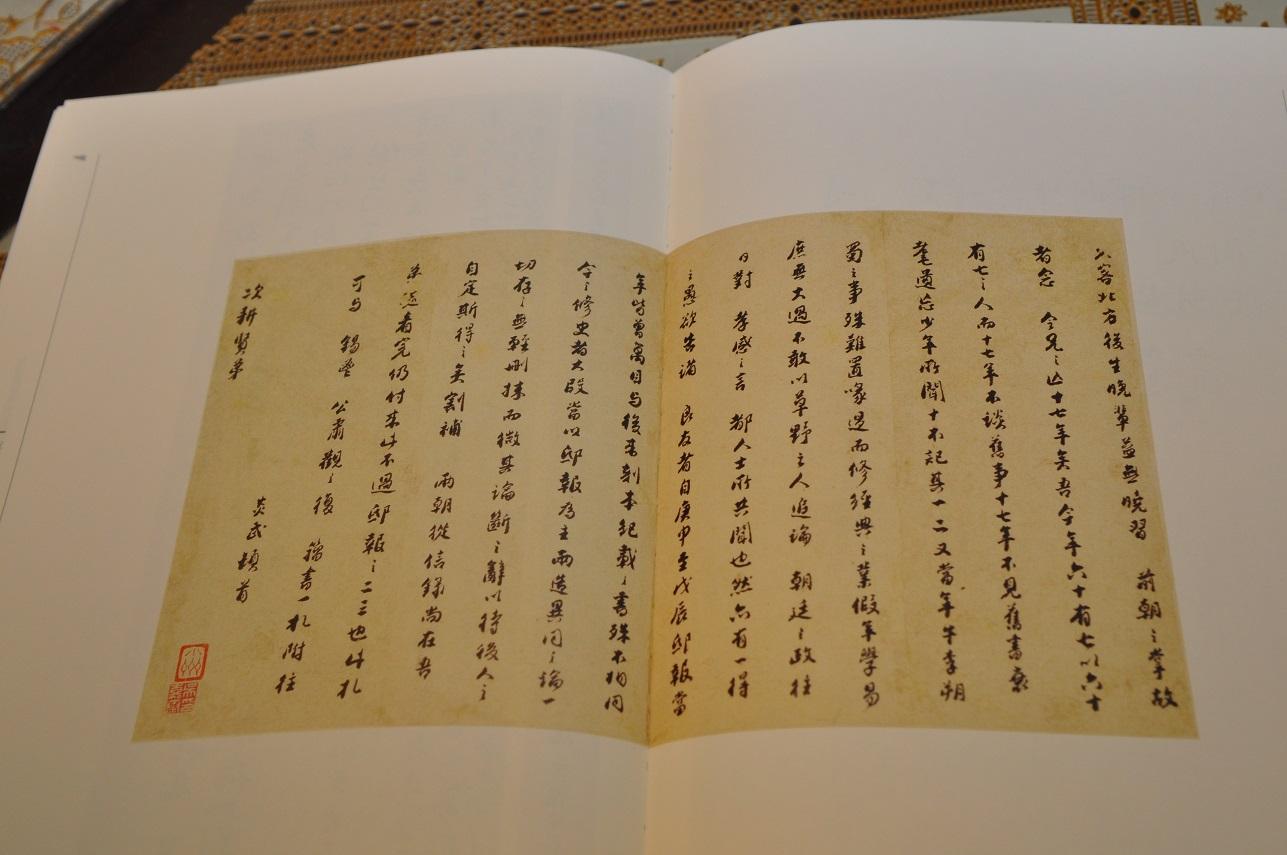 久客北方後生晚輩益無曉習　前朝之掌故
者念　令兄之亡十七年矣吾今年六十有七以六十
有七之人而十七年不談舊事十七年不見舊書衰
耄遺忘少年所聞十不記其一二又當年牛李朔
蜀之事殊難置喙退而修經典之業假年學易
庶無大過不敢以草野之人追論　朝廷之政往
日對　孝感之言　都人士所共聞也然亦有一得
之愚欲告諸　良友者自庚申至戊辰邸報當
年皆曾寓目与後來刻本紀載之書殊不相同
今之修史者大段當以邸報為主兩造異同之論一
切存之無輕刪抹而微其論斷之辭以待後人之
自定斯得之矣割補　兩朝從信錄尚在吾
弟處看完仍付來此不過邸報之二三也此札
可与　錫鬯　公肅觀之復　稿書一札附往
炎武頓首
次耕賢弟